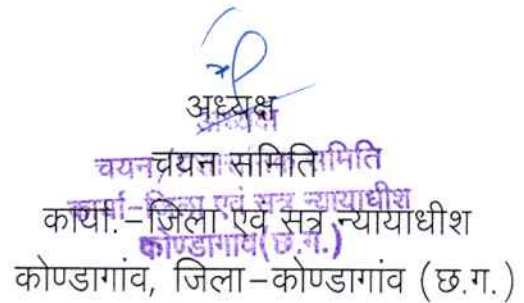 अध्यक्ष
चयन समिति
कार्या.-जिला एवं सत्र न्यायाधीश
कोण्डागांव, जिला-कोण्डागांव (छ.ग.)
अध्यक्ष
चयन समिति
कार्या-जिला एवं सत्र न्यायाधीश
कोण्डागांव (छ.ग.)